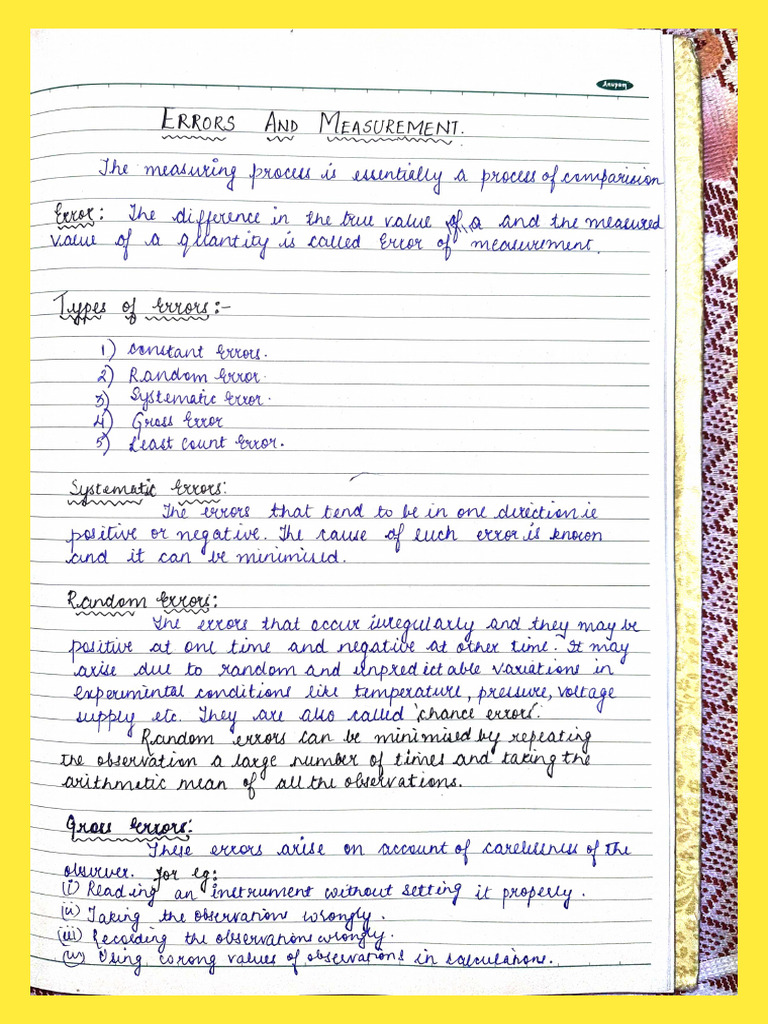 Anupam
ERRORS AND MEASUREMENT.
The measuring process is essentially a process of comparision
Error: The difference in the true value of a and the measured
value of a quantity is called Error of measurement.
Types of Errors:-
1) Constant Errors.
2) Random Error.
3) Systematic Error.
4) Gross Error
5) Least Count Error.
Systematic Errors:
The errors that tend to be in one direction ie
positive or negative. The cause of such error is known
and it can be minimised.
Random Errors:
The errors that occur irregularly and they may be
positive at one time and negative at other time. It may
arise due to random and unpredictable variations in
experimental conditions like temperature, pressure, voltage
supply etc. They are also called 'chance errors'.
Random errors can be minimised by repeating
the observation a large number of times and taking the
arithmetic mean of all the observations.
Gross Errors:
These errors arise on account of carelessness of the
observer. For eg:
(i) Reading an instrument without setting it properly.
(ii) Taking the observations wrongly.
(iii) Recording the observations wrongly.
(iv) Using wrong values of observations in calculations.